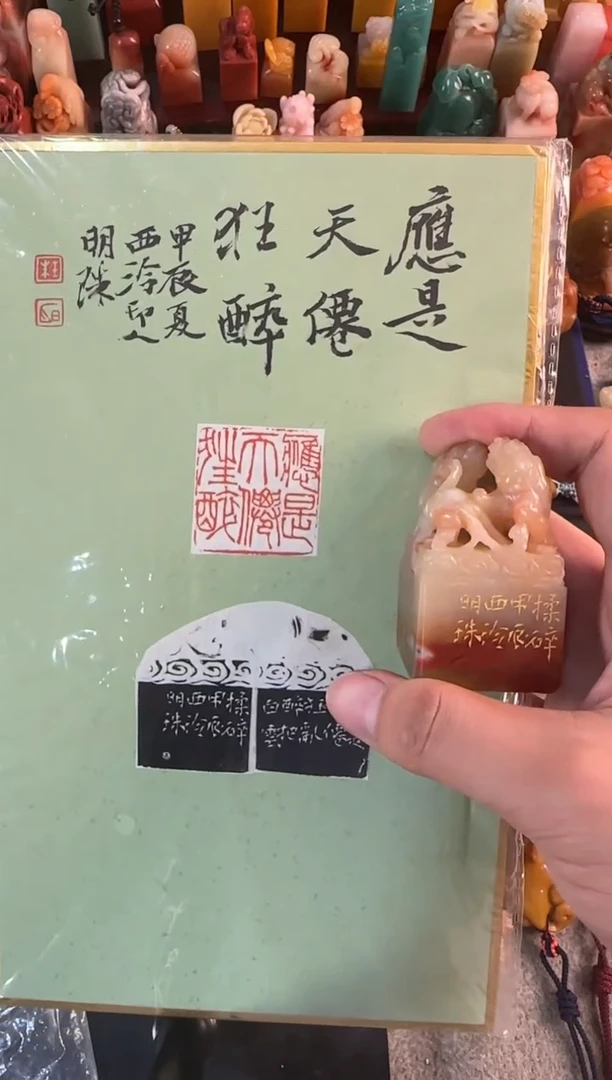 應是
天僊
狂醉
甲辰夏
西泠印人
明珠
應是
天僊
狂醉
白雲
揉碎
甲辰
西泠
明珠
揉碎
甲辰
西泠
明珠